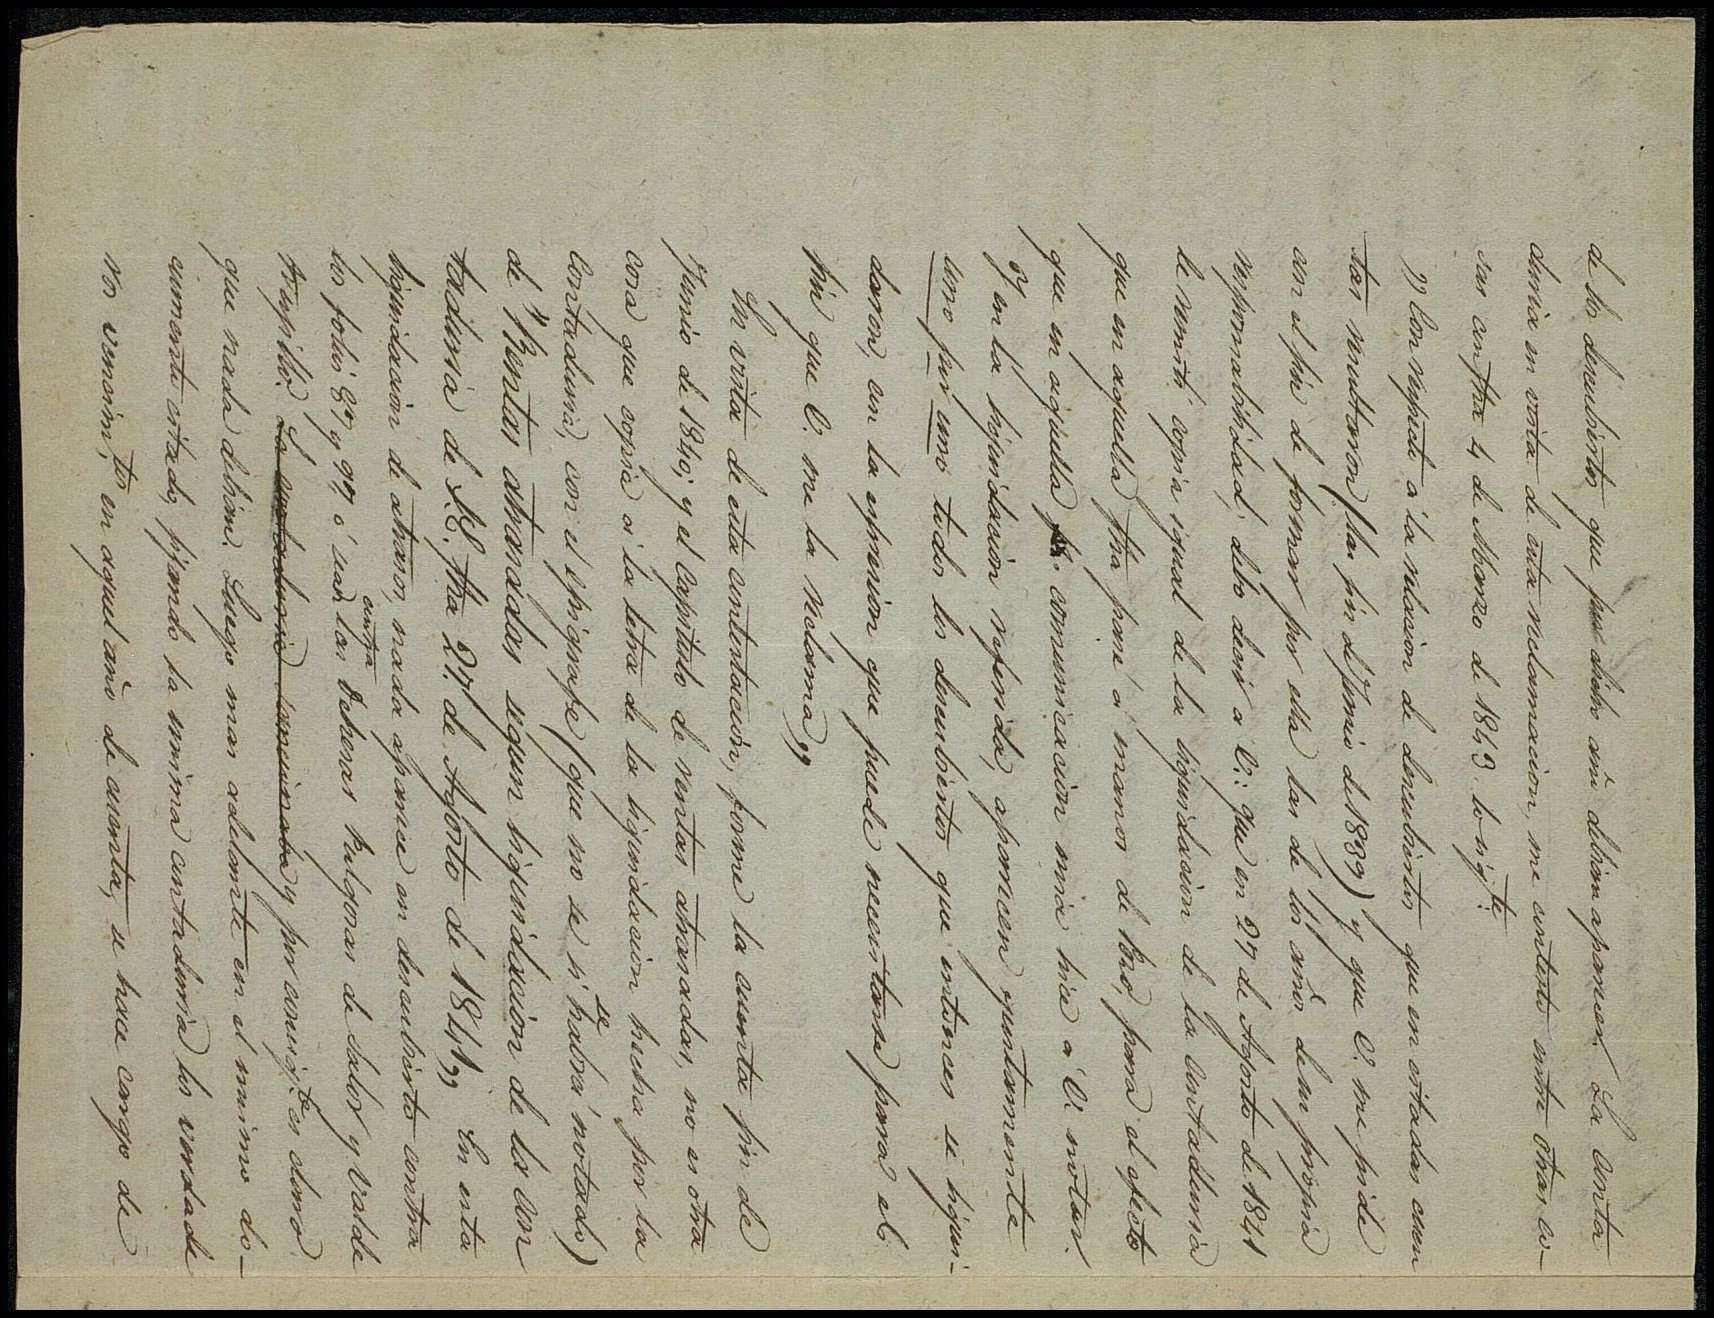 de los descubiertos que por dicho año debian aparecer. La Conta
duria en vista de esta reclamacion, me contestó entre otras co-
sas con fha 4 de Marzo de 1843. lo sigte:
"Con respecto á la relacion de descubiertos que en citadas cuen
tas resultaron (las fin de Junio de 1839) y que V. me pide
con el fin de formar por ella las de los años de su propia
responsabilidad; debo decir a V.: que en 27 de Agosto de 1841
le remití copia igual de la liquidacion de la Contaduria
que en aquella fha pasé á manos de para el efecto
que en aquella comunicacion mia hice a V. notar:
y en la liquidacion referida, aparecen juntamente
uno por uno todos los descubiertos que entonces se liqui-
daron, con la expresion que puede necesitarse para el
fin que V. me la reclama"
En vista de esta contestacion, formé la cuenta fin de
Junio de 1840; y el capitulo de rentas atrasadas, no es otra
cosa que copia á la letra de la liquidacion hecha por la
Contaduria, con el epigrafe (que no se si se habrá notado)
de "Rentas atrasadas segun liquidacion de la Con
taduria de S.E. fha 27. de Agosto de 1841" En esta
liquidacion de atrasos, nada aparece en descubierto contra
los folios 87 y 97, ó sea contra las Dehesas Pulgosas de Salor y Valde
trujillo. La contaduria y por consigte es claro
que nada debian. Luego mas adelante en el mismo do-
cumento citado, fijando la misma contaduria los verdade
ros vencimtos en aquel año de cuenta, se hace cargo de